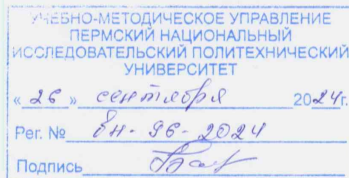 УЧЕБНО-МЕТОДИЧЕСКОЕ УПРАВЛЕНИЕ
ПЕРМСКИЙ НАЦИОНАЛЬНЫЙ
ИССЛЕДОВАТЕЛЬСКИЙ ПОЛИТЕХНИЧЕСКИЙ
УНИВЕРСИТЕТ
«26» сентября 2024г.
Рег. № вн-96-2024
Подпись